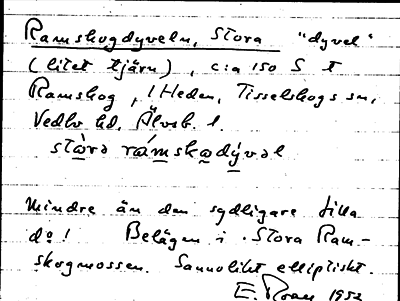 Ramskogdyveln, Stora "dyvel"
(litet tjärn), c:a 150 S t
Ramskog, 1 Heden, Tisselskogs sn,
Vedbo hd, Älvsb. l.
stàra rámskadývəl
Mindre än den sydligare lilla
do! Belägen i Stora Ram-
skogmossen. Sannolikt elliptiskt.
E. 1952